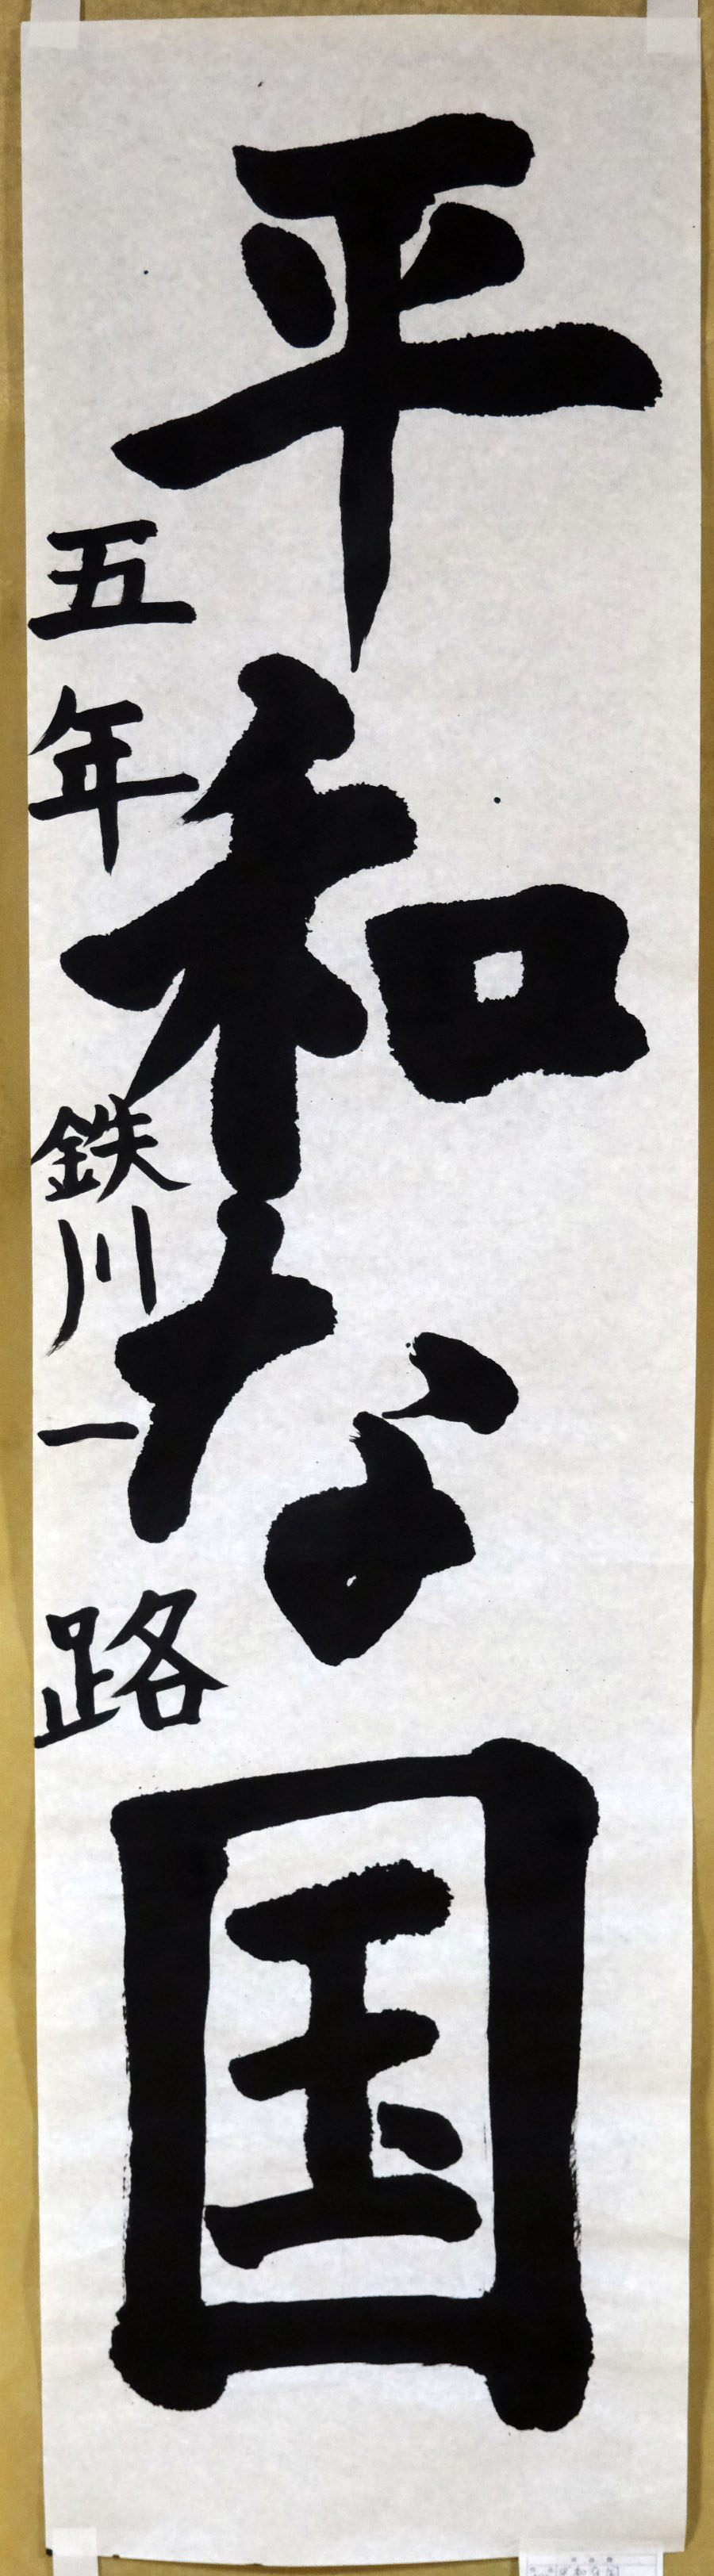 平和な国
五年 鉄川一路